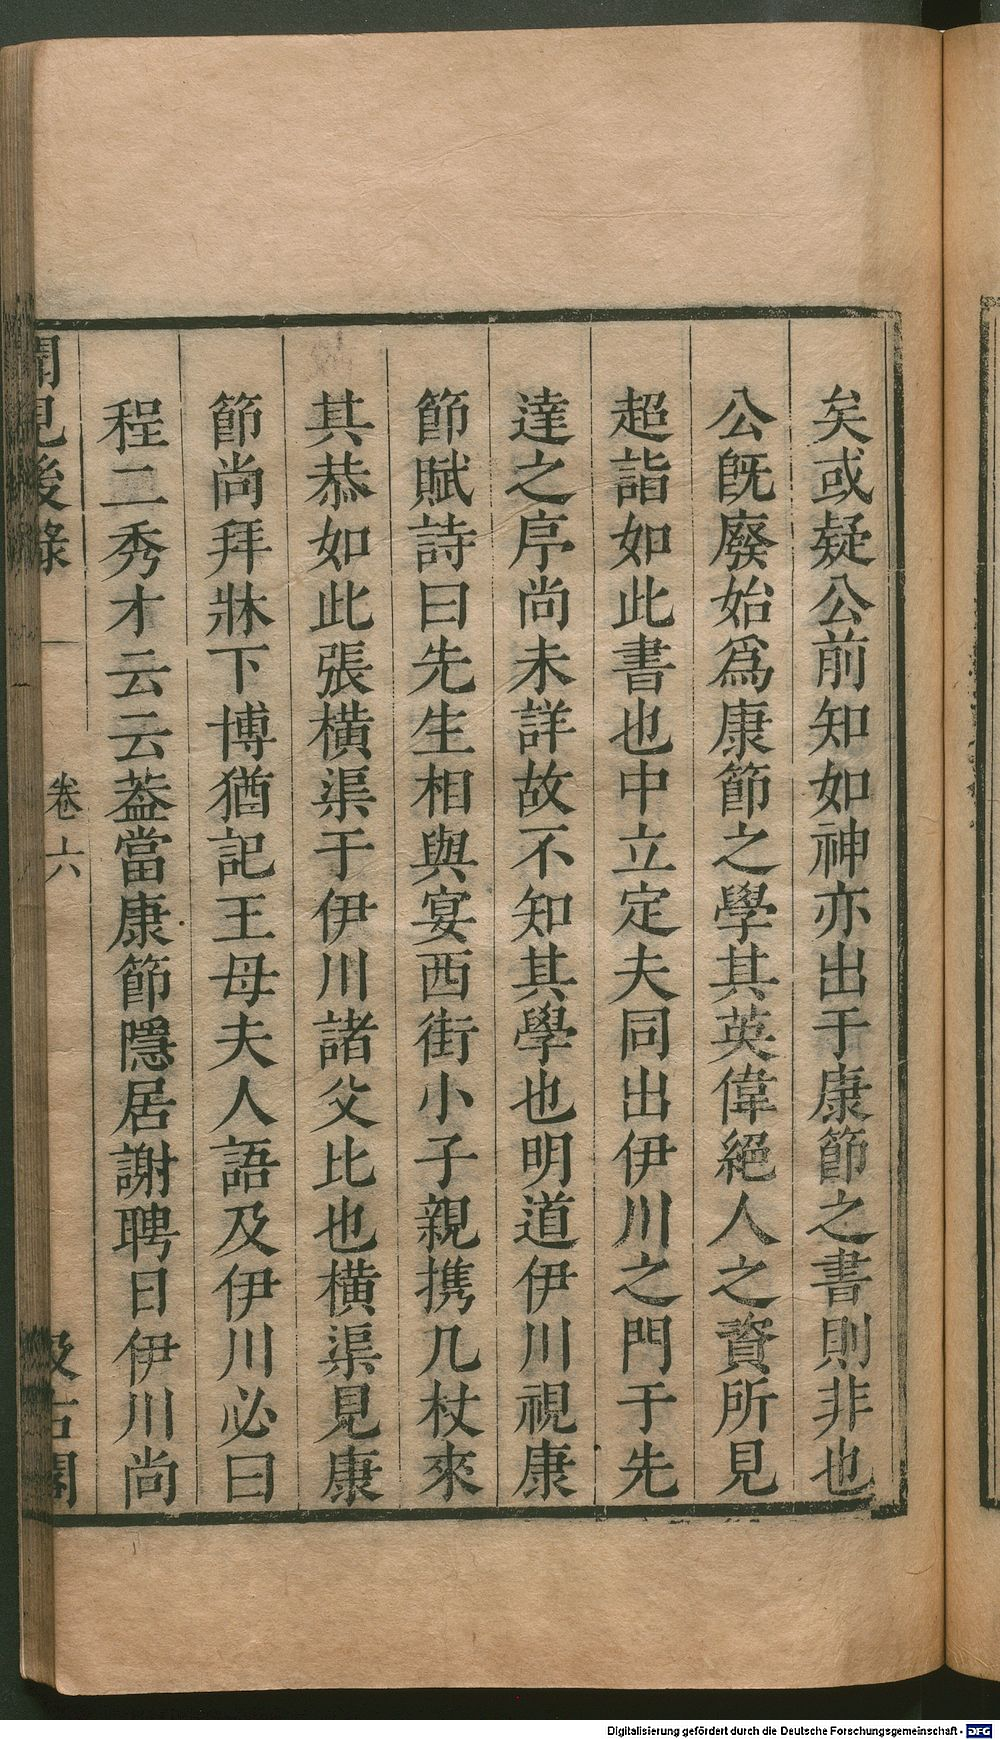 矣或疑公前知如神亦出于康節之書則非也
公旣廢始爲康節之學其英偉絕人之資所見
超詣如此書也中立定夫同出伊川之門于先
達之序尚未詳故不知其學也明道伊川視康
節賦詩曰先生相與宴西街小子親携几杖來
其恭如此張橫渠于伊川諸父比也橫渠見康
節尚拜牀下博猶記王母夫人語及伊川必曰
程二秀才云云葢當康節隱居謝聘日伊川尚
聞見後錄
卷六
汲古閣
Digitalisierung gefördert durch die Deutsche Forschungsgemeinschaft - DFG